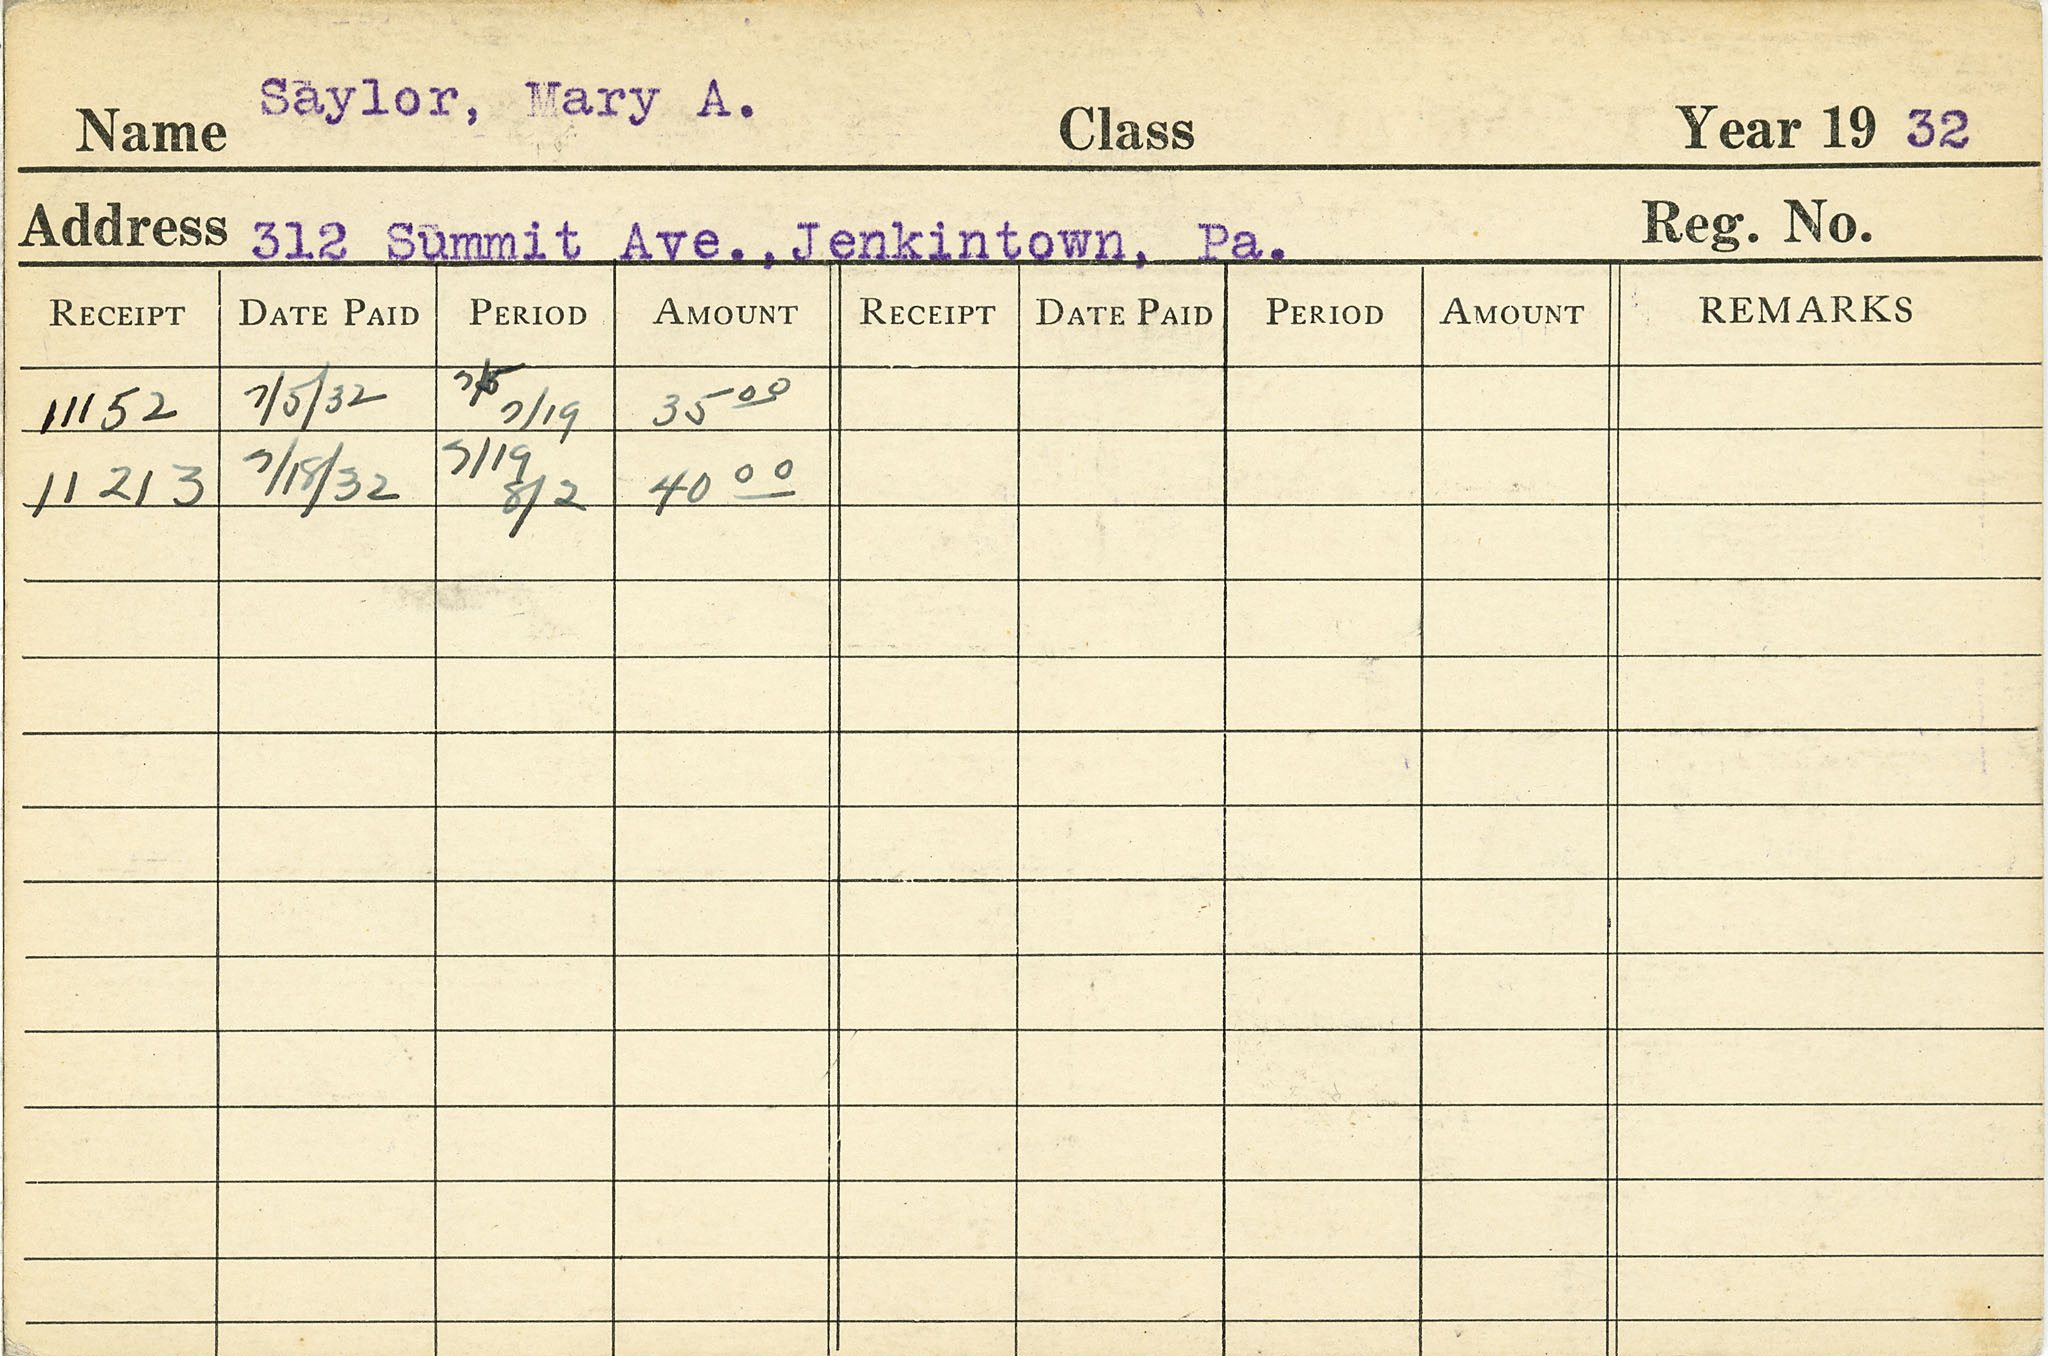 Name Saylor, Mary A. Class Year 19 32
Address 312 Summit Ave., Jenkintown, Pa. Reg. No.
RECEIPT DATE PAID PERIOD AMOUNT RECEIPT DATE PAID PERIOD AMOUNT REMARKS
11152 7/5/32 7/5 7/19 35 00
11213 7/18/32 7/19 8/2 40 00